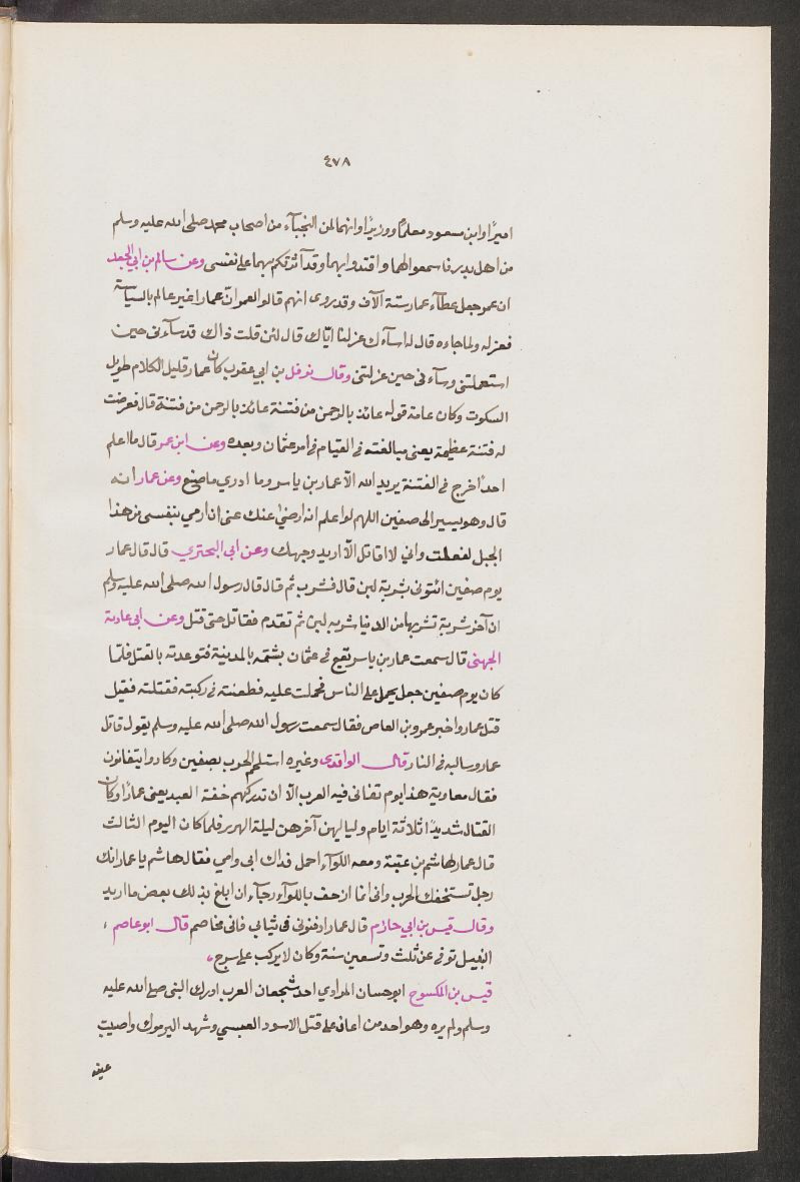 ٤٧٨
اميرًا وابن مسعود معلمًا ووزيرًا وانهما لمن النجباء من اصحاب محمد صلى الله عليه وسلم
من اهل بدر فاسمعوا لهما واقتدوا بهما وقد آثرتكم بهما على نفسى وعن سالم بن ابي الجعد
ان عمر جعل عطاء عمار ستة الآف وقد روى انهم قالوا لعمر ان عمارا غير عالم بالسياسة
فعزله ولما جاءه قال له اساءك عزلنا اياك قال لئن قلت ذاك قد ساءنى حين
استعملتنى وساءنى حين عزلتنى وقال نوفل بن ابي عقرب كان عمار قليل الكلام طويل
السكوت وكان عامة قوله عائذ بالرحمن من فتنة عائذ بالرحمن من فتنة قال فعرضت
له فتنة عظيمة يعنى مبالغته فى القيام فى امر عثمان وبعده وعن ابن عمر قال ما اعلم
احدًا خرج فى الفتنة يريد الله الا عمار بن ياسر وما ادري ما صنع وعن عمار انه
قال وهو يسير الى صفين اللهم لو اعلم انه ارضى عنك عنى ان ارمي بنفسى من هذا
الجبل لفعلت واني لا اقاتل الا اريد وجهك وعن ابي البحتري قال قال عمار
يوم صفين ائتونى بشربة لبن قال فشرب ثم قال قال رسول الله صلى الله عليه وسلم
ان آخر شربة تشربها من الدنيا شربه لبن ثم تقدم فقاتل حتى قتل وعن ابى عادية
الجهنى قال سمعت عمار بن ياسر يقع فى عثمان يشتمه بالمدينة فتوعدته بالقتل فلما
كان يوم صفين جعل يحمل على الناس فحملت عليه فطعنته فى ركبته فقتلته فقيل
قتل عمار واخبر عمرو بن العاص فقال سمعت رسول الله صلى الله عليه وسلم يقول قاتل
عمار وسالبه فى النار قال الواقدى وغيره استلحم الحرب بصفين وكادوا يتفانون
فقال معاوية هذا يوم تفانى فيه العرب الا ان تدركهم خفة العبد يعنى عمارًا وكان
القتال شديدًا ثلاثة ايام ولياليهن آخرهن ليلة الهرير فلما كان اليوم الثالث
قال عمار لهاشم بن عتبة ومعه اللواء احمل فداك ابى وامي فقال هاشم يا عمار انك
رجل تستخفك الحرب وانى انما ازحف باللواء رجاء ان ابلغ بذلك بعض ما اريد
وقال قيس بن ابي حازم قال عمار ادفنونى فى ثيابى فانى مخاصم قال ابو عاصم ،
النبيل توفى عن ثلث وتسعين سنة وكان لا يركب على سرج ،
قيس بن المكسوح ابو حسان المرادي احد شجعان العرب ادرك النبى صلى الله عليه
وسلم ولم يره وهو احد من اعان على قتل الاسود العبسي وشهد اليرموك واصيبت
عينه